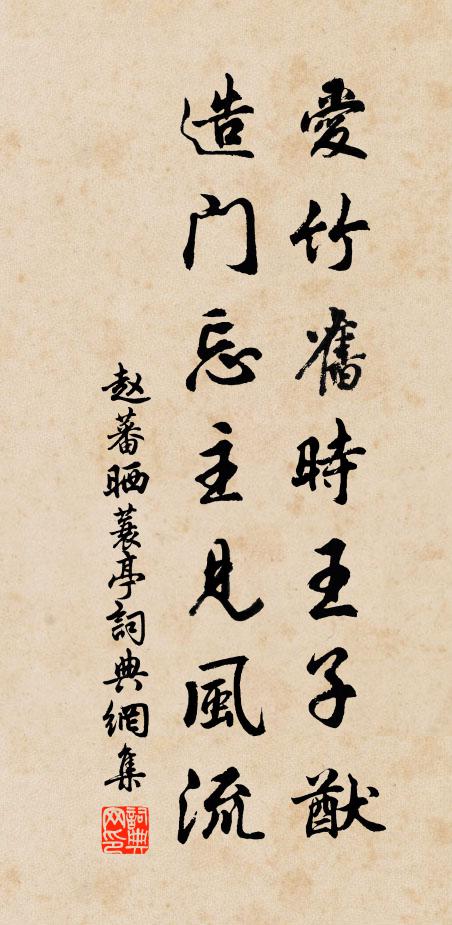 愛竹舊時王子猷
造門忘主見風流
赵蕃晒蓑亭詞典網集
詞典網印